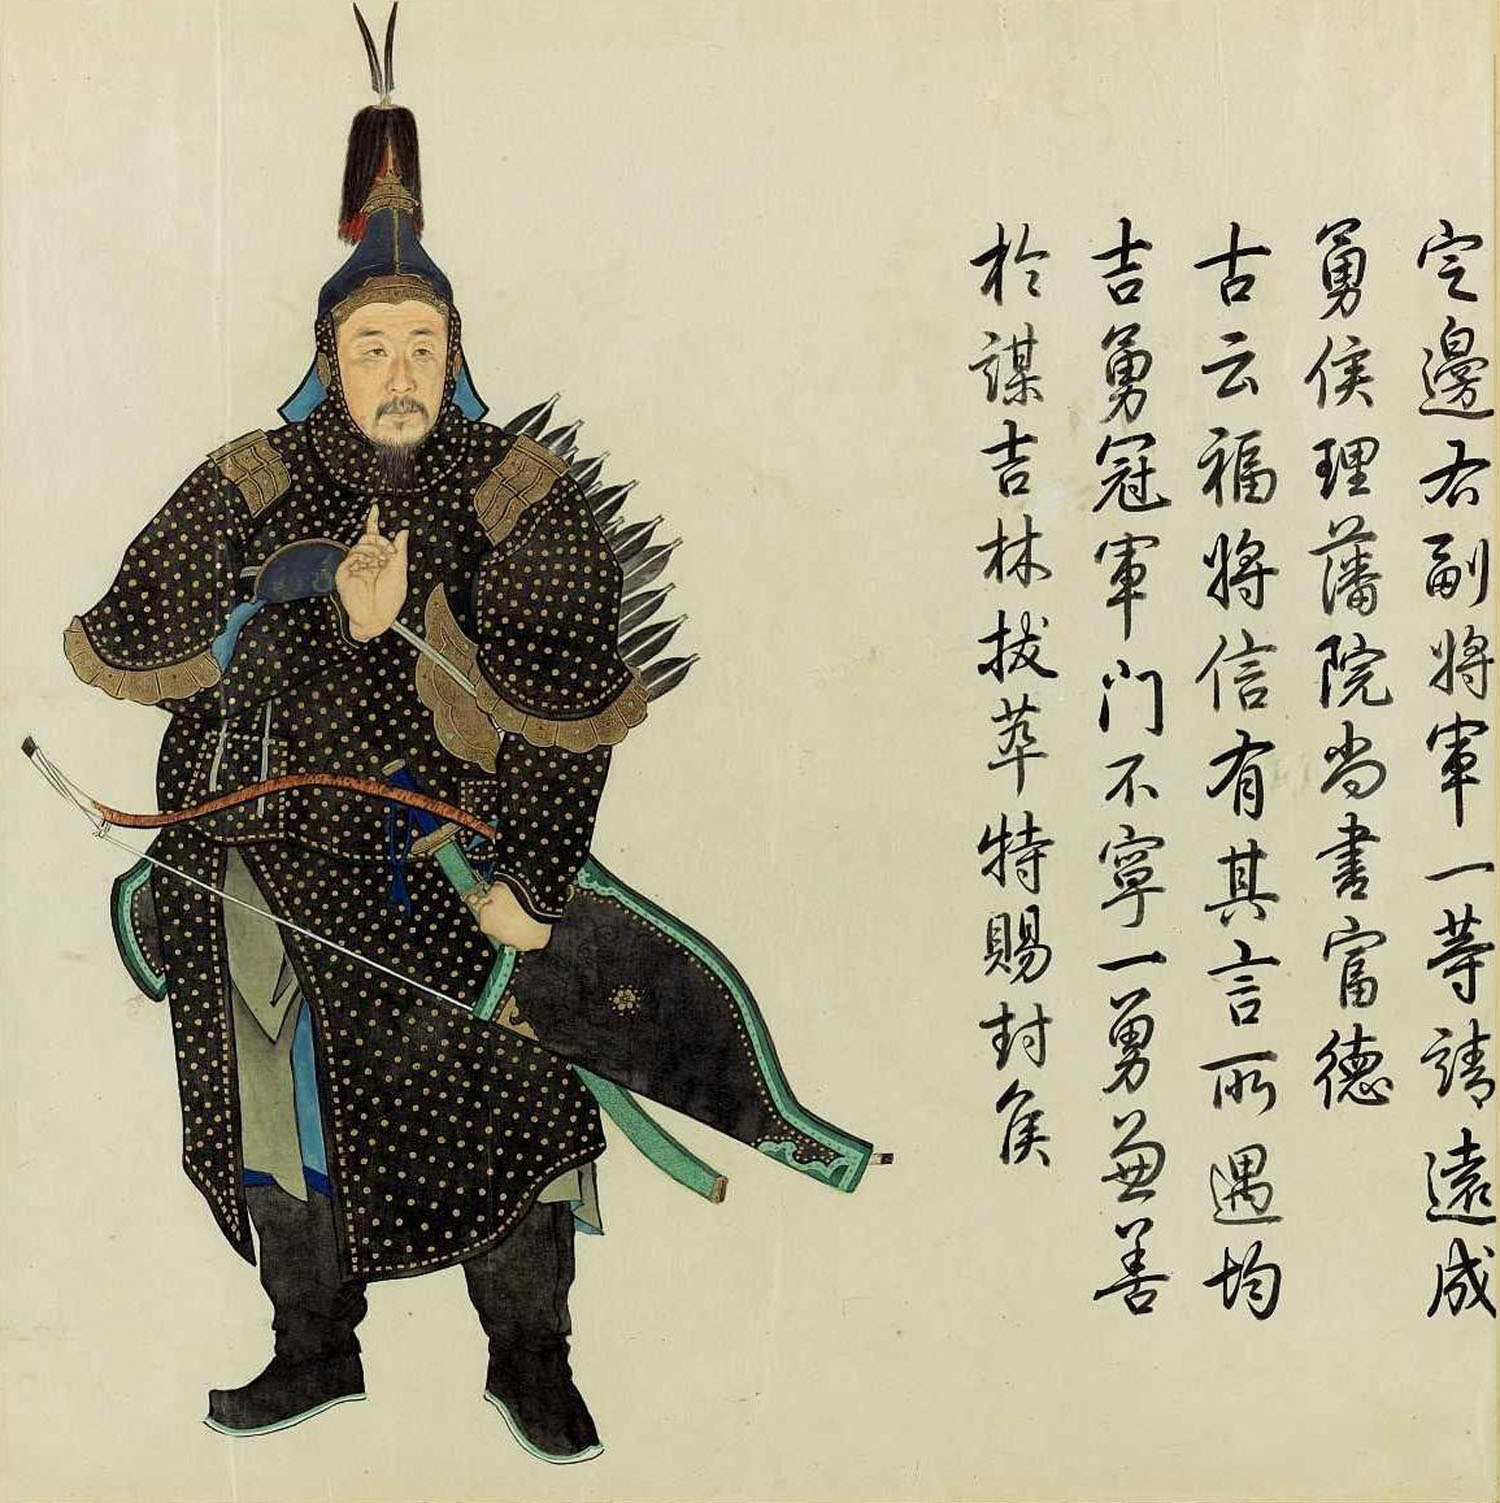 定邊右副將軍一等靖遠成
勇侯理藩院尚書富德
古云福將信有其言所遇均
吉勇冠軍門不寧一勇兼善
於謀吉林拔萃特賜封侯